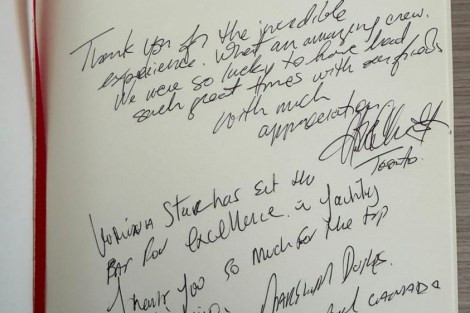 Thank you for the incredible
experience. What an amazing crew.
We were so lucky to have had
such great times with our friends
With much
appreciation
Toronto.
Star has set the
Bar for excellence in yachting
Thank you so much for the trip
Marshall
Canada